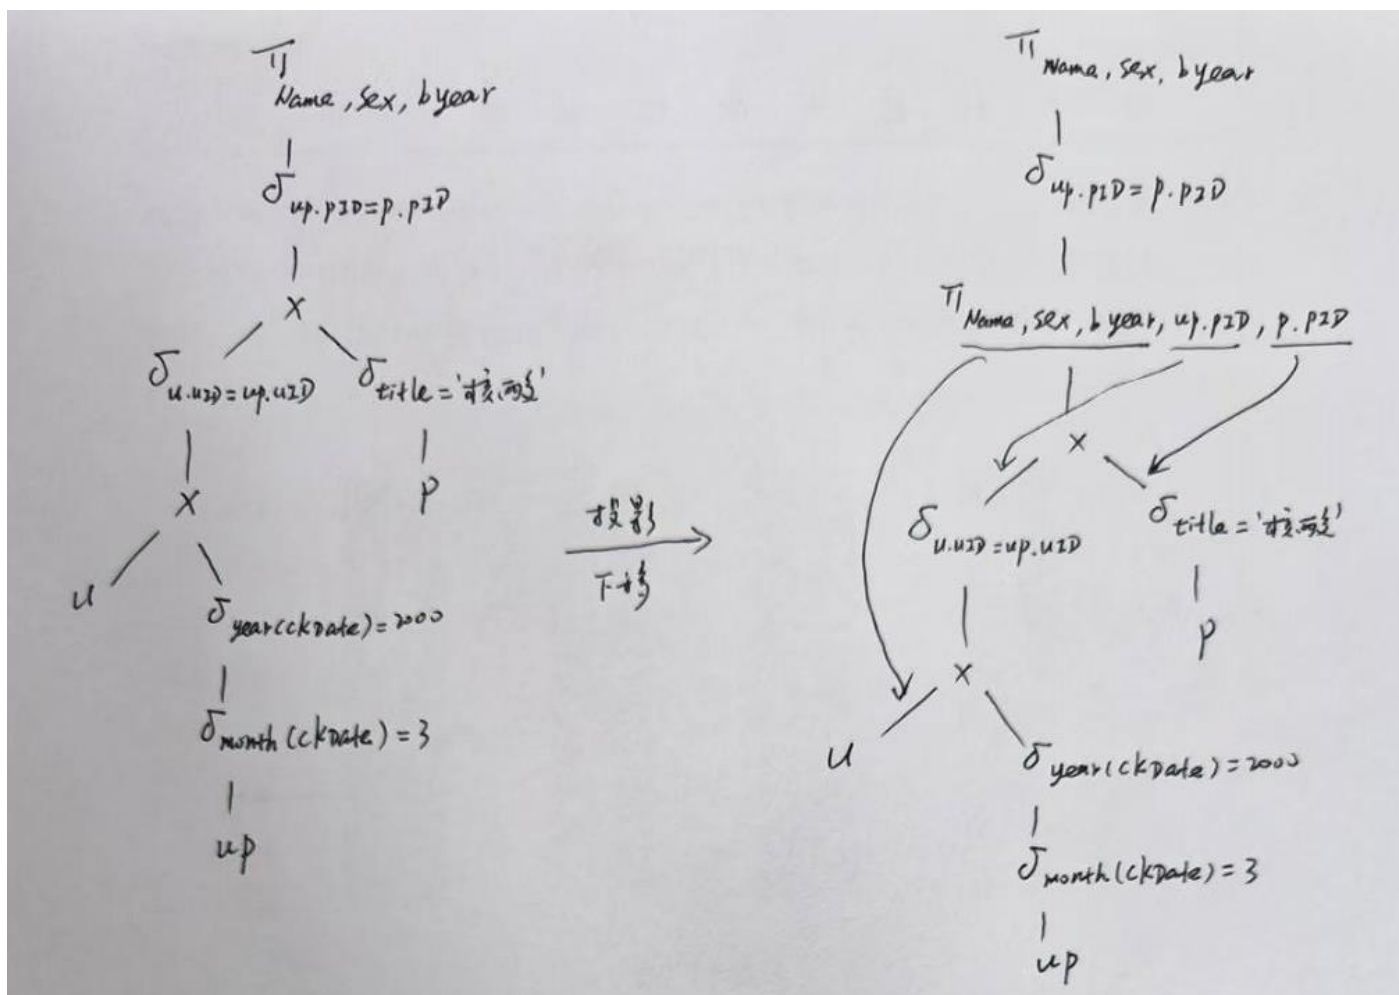 π Name, sex, byear
δ up.pID=p.pID
×
δ u.uID=up.uID
δ title='核酸'
×
p
u
δ year(ckDate)=2000
δ month(ckDate)=3
up
投影
下移
π Name, sex, byear
δ up.pID=p.pID
π Name, sex, byear, up.pID, p.pID
×
δ u.uID=up.uID
δ title='核酸'
p
×
u
δ year(ckDate)=2000
δ month(ckDate)=3
up